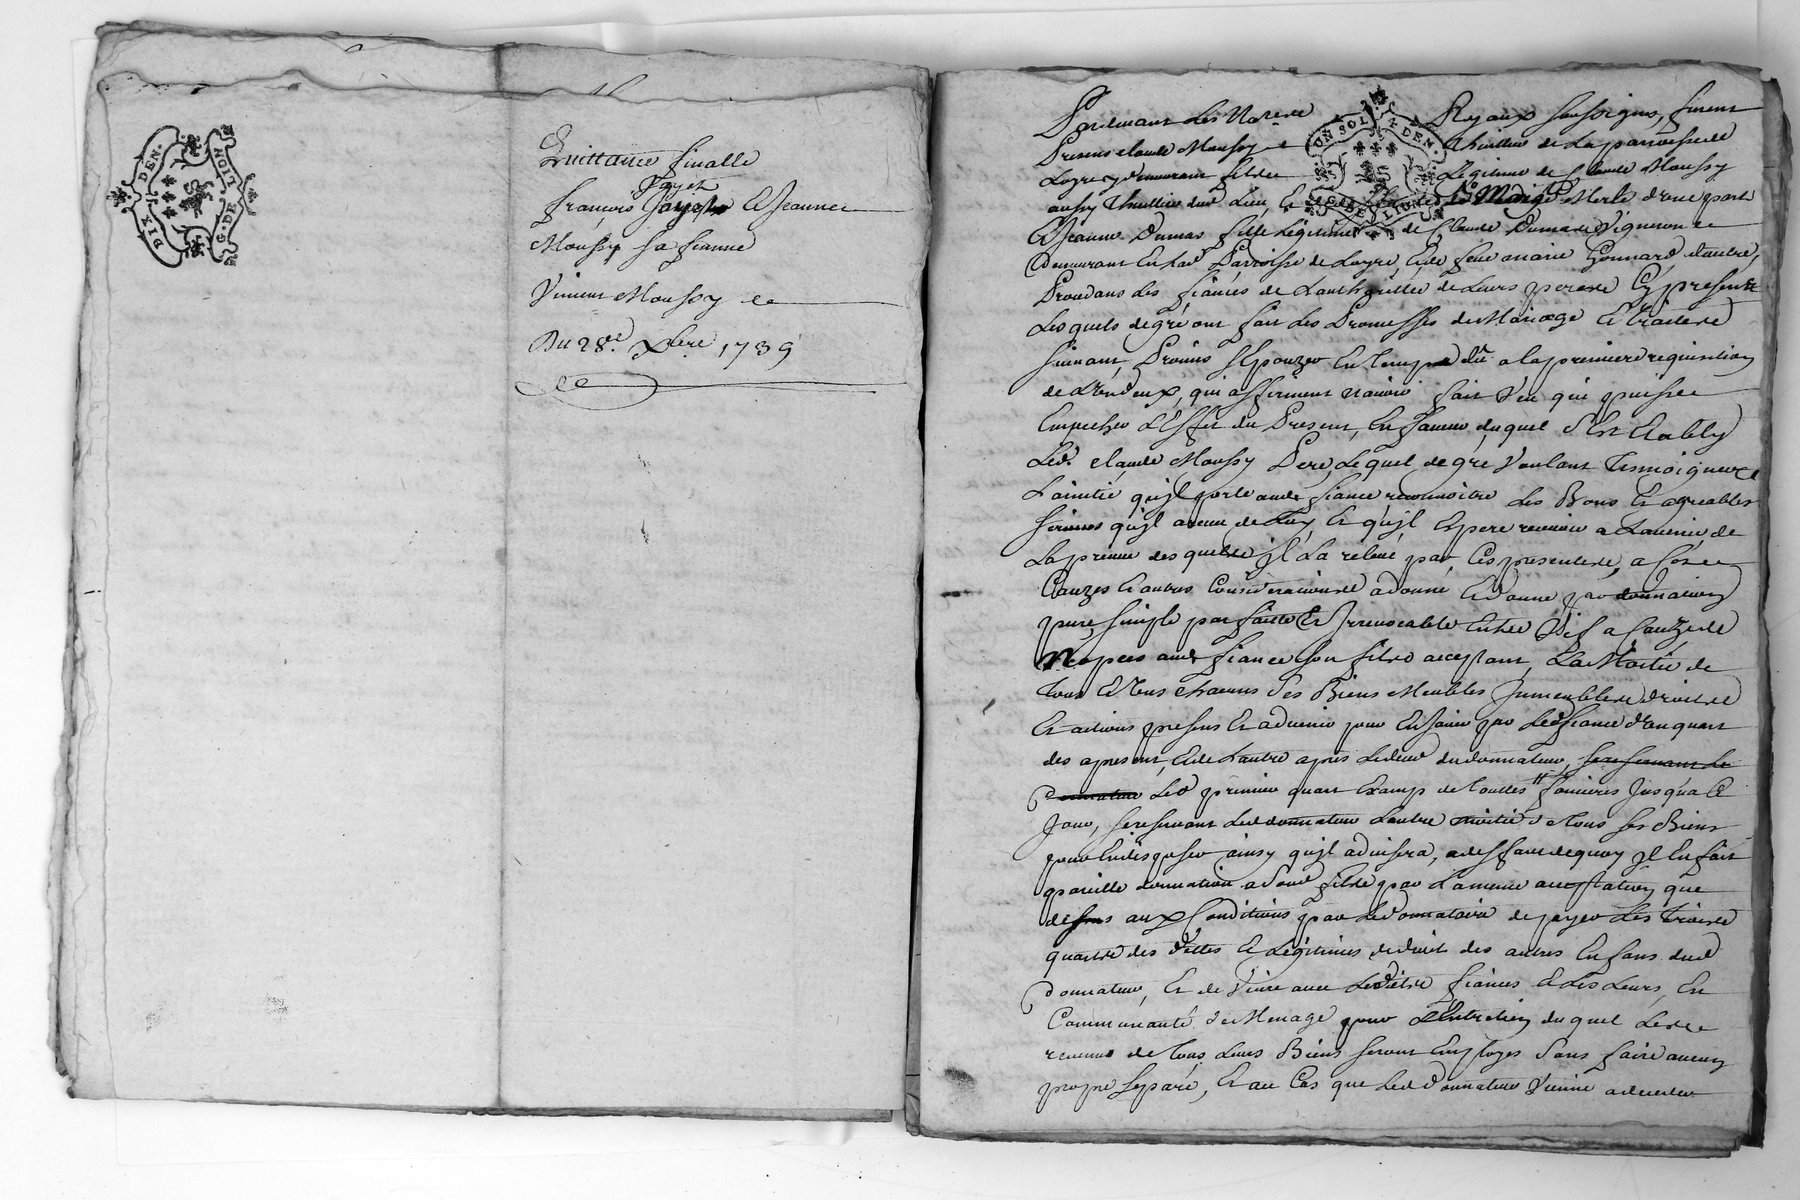 DIX DEN.
G. DE LION
Quittance finalle
Jayet
François Jayet & Jeanne
Moussy sa femme
Vincent Moussy
Du 28e. Xbre 1739
UN SOL 4 DEN.
G. DE LION
Pardevant les No.res Royaux soussignés, furent
Presens claude Moussy thuillier de la parroisse de
Loyre y demeurant fils Legitime de Claude Moussy
aussy thuillier dud. Lieu, Et de Marie Merle d'une part
Et Jeanne Dumas fille Legitime de Claude Dumas Vigneron
demeurant En lad. Parroisse de Loyre Et de feue marie Gonnard d'autre,
Procedans Les fiancés de L'authorité de Leurs peres Cy presents
Lesquels de gré ont fait Les Promesses de Mariage Et traité
suivant, Promis s'Epouzer En temps du a la premiere requisition
de L'un d'eux, qui affirment n'avoir fait Veu qui puisse
Empecher L'Effet du Present, En faveur duquel s'Est Etably
Led. claude Moussy Pere, Lequel de gré Voulant tesmoigner
L'amitié qu'jl porte aud. fiancé reconnoitre Les Bons Et agreables
services qu'jl a receu de Luy, Et qu'jl Espere recevoir a L'avenir, de
La preuve desquels jl La relevé par Ces presentes, a Ces
Cauzes Et autres Considerations a donné Et donne par donnation
pure, simple parfaite Et Jrrevocable Entre Vif a Cauze de
Nopces aud. fiancé son fils acceptant, La Moitié de
tous Et Uns chacuns ses Biens Meubles Jmmeubles droits
Et actions presens Et advenir pour En Jouir par Led. fiancé d'un quart
des apresent, Et de L'autre apres Le deces du donnateur, se reservant Le
donnateur Led. premier quart Exampt de touttes saisines Jusqu'a Ce
Jour, se reservant Led. donnateur L'autre moitié de tous ses Biens
pour En disposer ainsy qu'jl advisera, a deffaut de quoy Jl En fait
pareille donnation a sond. fils par La meme acceptation que
dessus aux Conditions par Le donnataire de payer Les trois
quarts des dettes Et Legitimes de droit des autres Enfans dud.
donnateur, Et de Vivre avec Lesdits fiancés Et Les Leurs, En
Communauté de Menage pour L'Entretien duquel Les
revenus de tous Leurs Biens seront Employés sans faire aucun
propre separé, Et au Cas que Led. donnateur Vienne a deceder